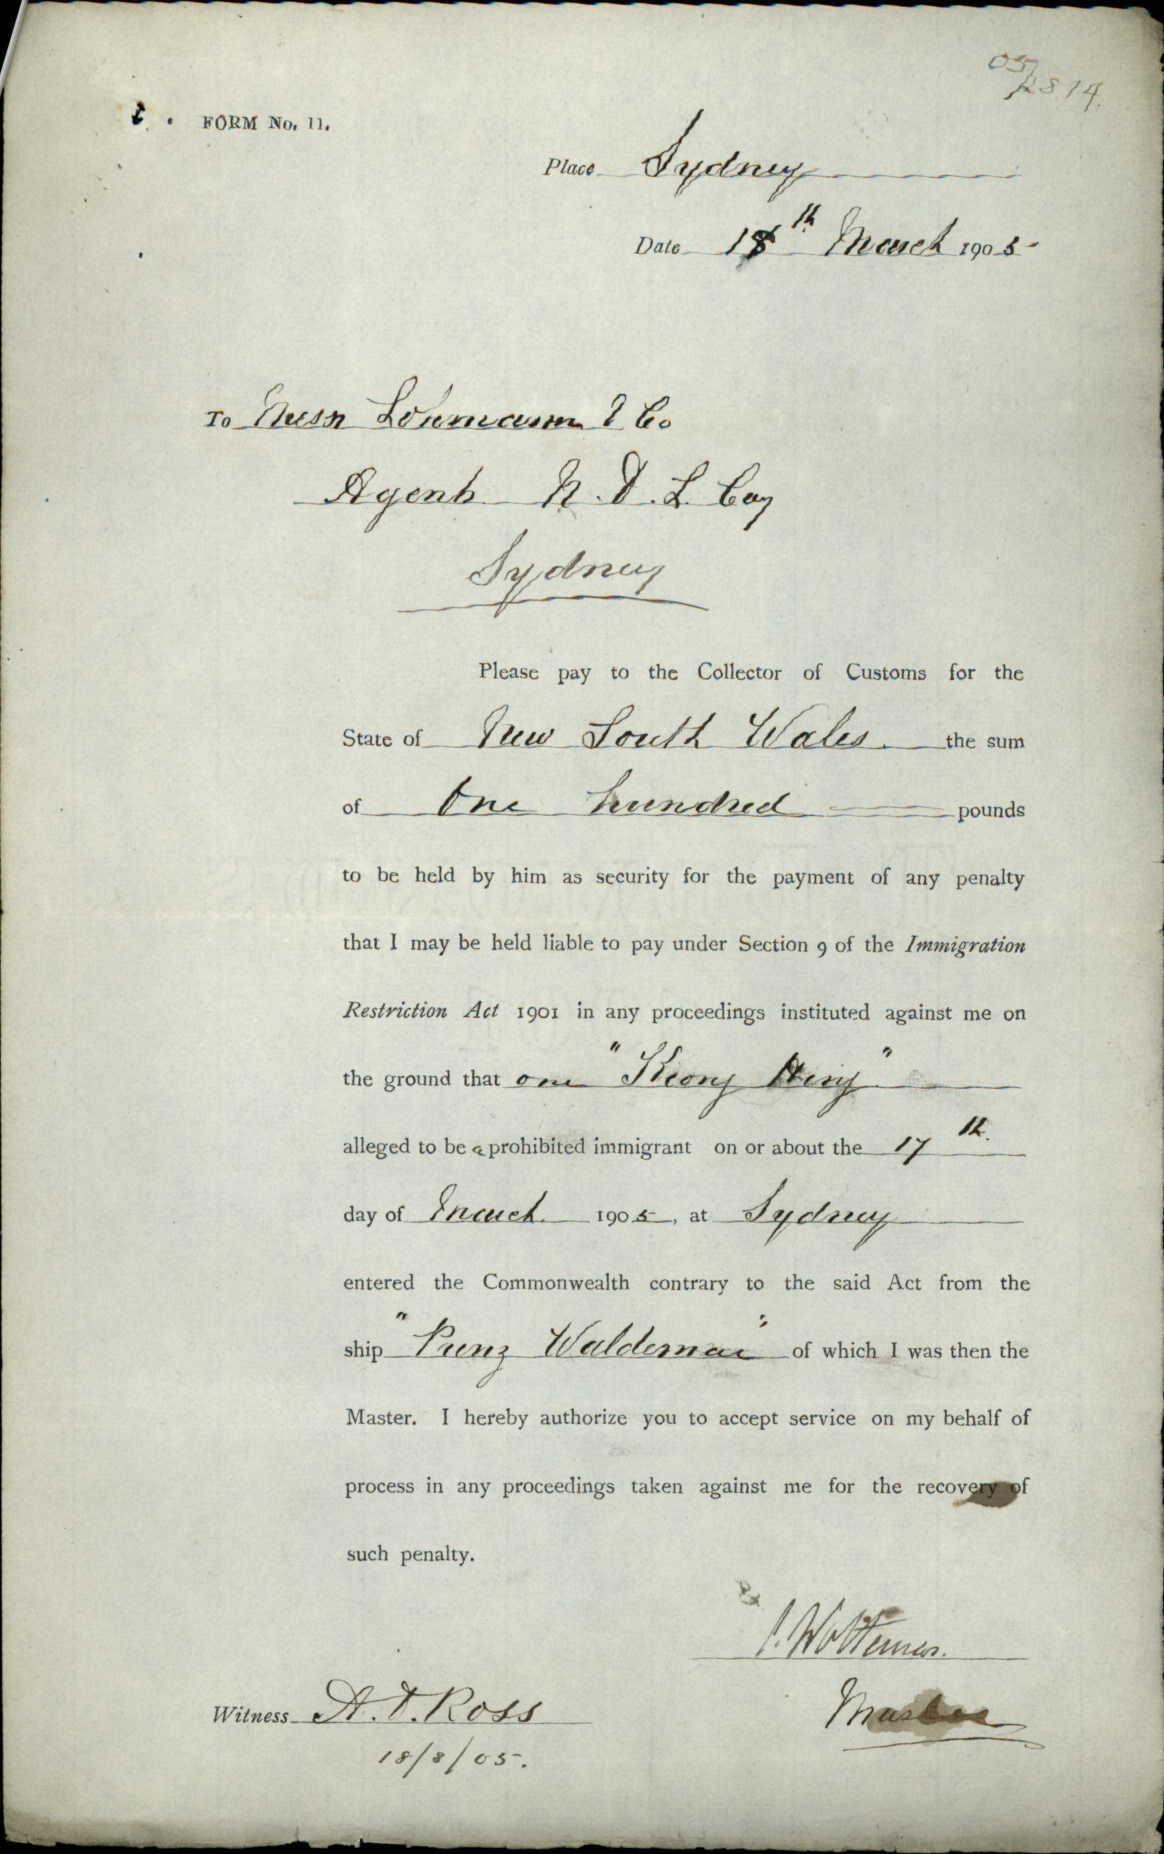 05/2814.
FORM No. 11.
Place Sydney
Date 18th March 1905
To Messrs Lohmann & Co
Agents N. D. L. Coy
Sydney
Please pay to the Collector of Customs for the
State of New South Wales the sum
of One hundred pounds
to be held by him as security for the payment of any penalty
that I may be held liable to pay under Section 9 of the Immigration
Restriction Act 1901 in any proceedings instituted against me on
the ground that one "Keong Hing"
alleged to be a prohibited immigrant on or about the 17th.
day of March 1905, at Sydney
entered the Commonwealth contrary to the said Act from the
ship "Prinz Waldemar" of which I was then the
Master. I hereby authorize you to accept service on my behalf of
process in any proceedings taken against me for the recovery of
such penalty.
Master
Witness A. D. Ross
18/3/05.